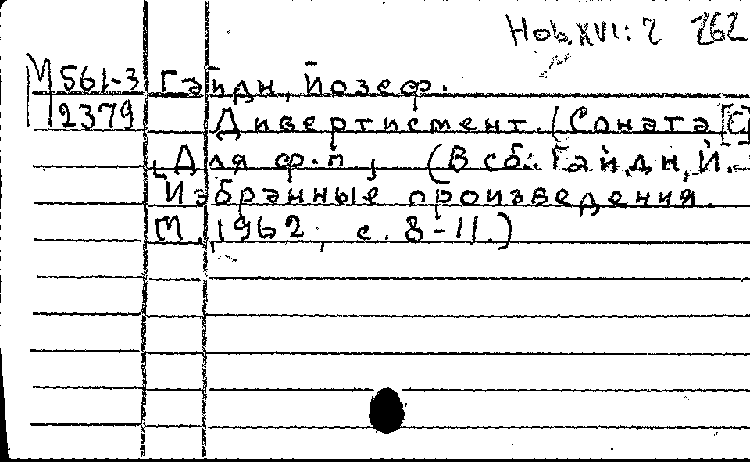 Hob. XVI: 2 262
М 561-3 Гайдн, Йозеф.
2379 Дивертисмент. (Соната [C]
, Для ф.-п., (В сб.: Гайдн, Й.
Избранные произведения.
М., 1962, с. 8-11.)